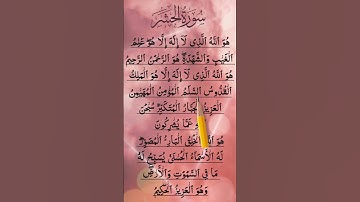 سُورَةُ الْحَشْر
هُوَ اللَّهُ الَّذِي لَآ إِلَٰهَ إِلَّا هُوَ عَٰلِمُ
الْغَيْبِ وَالشَّهَٰدَةِ هُوَ الرَّحْمَٰنُ الرَّحِيمُ
هُوَ اللَّهُ الَّذِي لَآ إِلَٰهَ إِلَّا هُوَ الْمَلِكُ
الْقُدُّوسُ السَّلَٰمُ الْمُؤْمِنُ الْمُهَيْمِنُ
الْعَزِيزُ الْجَبَّارُ الْمُتَكَبِّرُ سُبْحَٰنَ
عَمَّا يُشْرِكُونَ
هُوَ الْخَٰلِقُ الْبَارِئُ الْمُصَوِّرُ
لَهُ الْأَسْمَآءُ الْحُسْنَىٰ يُسَبِّحُ لَهُ
مَا فِي السَّمَٰوَٰتِ وَالْأَرْضِ
وَهُوَ الْعَزِيزُ الْحَكِيمُ